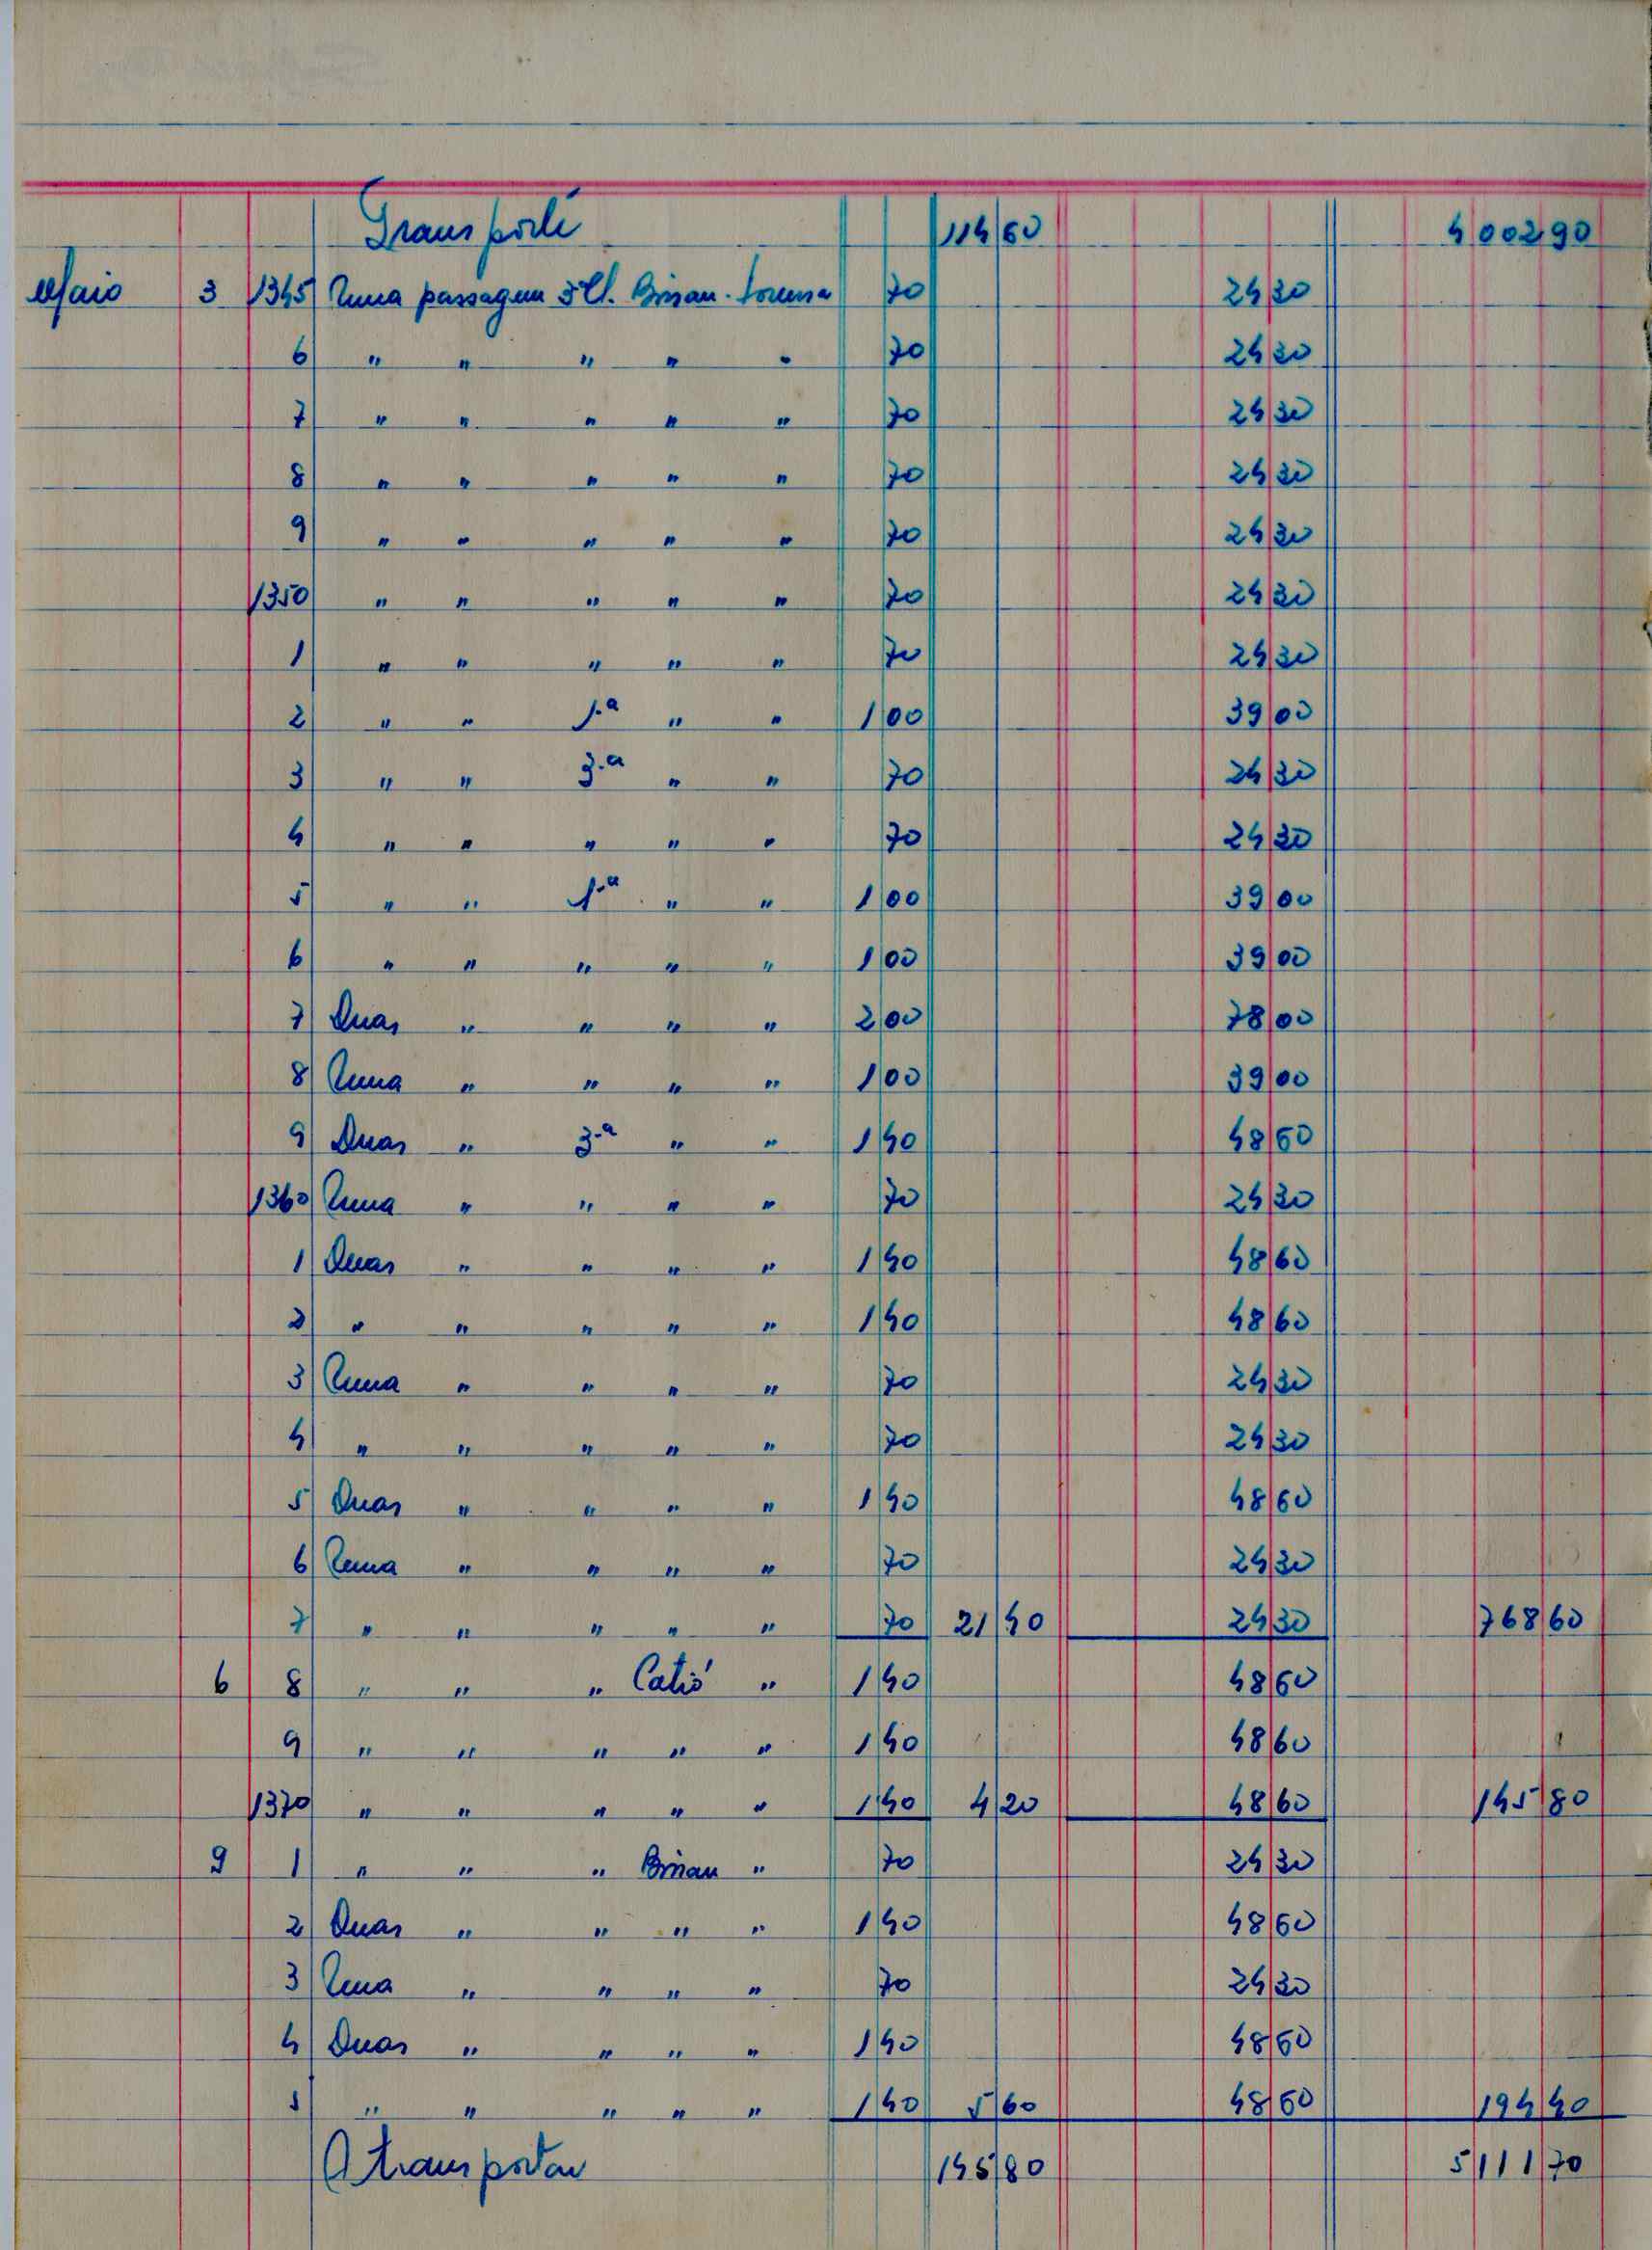 Transporte 114 60 4 002 90
Maio 3 1345 Uma passagem 3ª Cl. Bissau - 70 24 30
6 " " " " " 70 24 30
7 " " " " " 70 24 30
8 " " " " " 70 24 30
9 " " " " " 70 24 30
1350 " " " " " 70 24 30
1 " " " " " 70 24 30
2 " " 1.ª " " 1 00 39 00
3 " " 3.ª " " 70 24 30
4 " " " " " 70 24 30
5 " " 1.ª " " 1 00 39 00
6 " " " " " 1 00 39 00
7 Duas " " " " 2 00 78 00
8 Uma " " " " 1 00 39 00
9 Duas " 3.ª " " 1 40 48 60
1360 Uma " " " " 70 24 30
1 Duas " " " " 1 40 48 60
2 " " " " " 1 40 48 60
3 Uma " " " " 70 24 30
4 " " " " " 70 24 30
5 Duas " " " " 1 40 48 60
6 Uma " " " " 70 24 30
7 " " " " " 70 21 40 24 30 768 60
6 8 " " " Catió " 1 40 48 60
9 " " " " " 1 40 48 60
1370 " " " " " 1 40 4 20 48 60 145 80
9 1 " " " Bissau " 70 24 30
2 Duas " " " " 1 40 48 60
3 Uma " " " " 70 24 30
4 Duas " " " " 1 40 48 60
5 " " " " " 1 40 5 60 48 60 194 40
A transportar 145 80 5 111 70